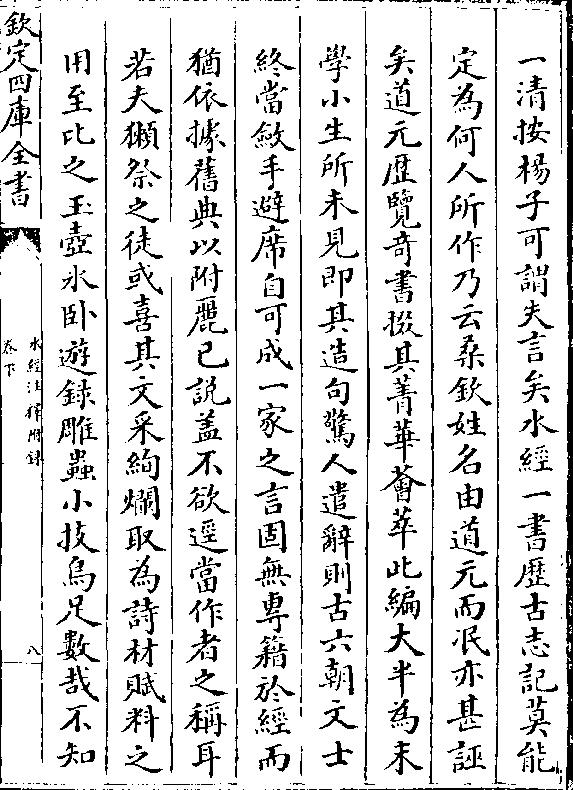 一清按楊子可謂失言矣水經一書歴古志記莫能
定為何人所作乃云桑欽姓名由道元而泯亦甚誣
矣道元歴覽竒書掇其菁華薈萃此編大半為末
學小生所未見即其造句驚人遣辭則古六朝文士
終當斂手避席自可成一家之言固無専籍於經而
猶依據舊典以附麗已説盖不欲逕當作者之稱耳
若夫獺祭之徒或喜其文采絢爛取為詩材賦料之
用至比之玉壺冰卧遊録雕蟲小技烏足數哉不知
欽定四庫全書
水經注釋附録
卷下
八